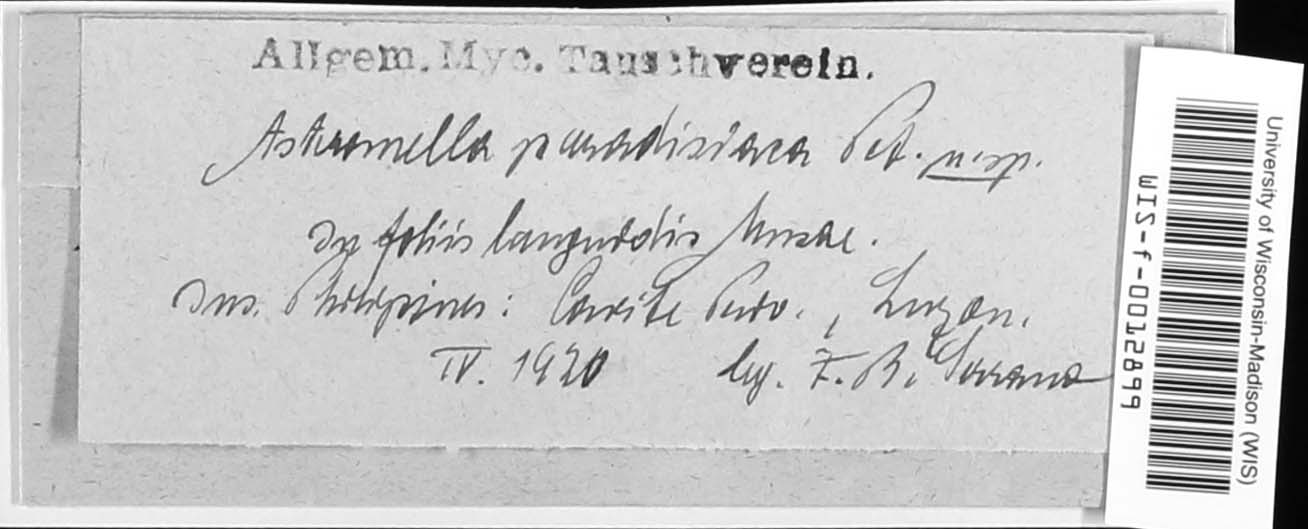 Allgem. Myc. Tauschverein.
Astromella paradisiaca Pet. n. sp.
In foliis languidis Musae.
Ins. Philippines: Cavite Prov., Luzon.
IV. 1920 leg. F. B. Serrano
University of Wisconsin-Madison (WIS)
WIS-f-0012899